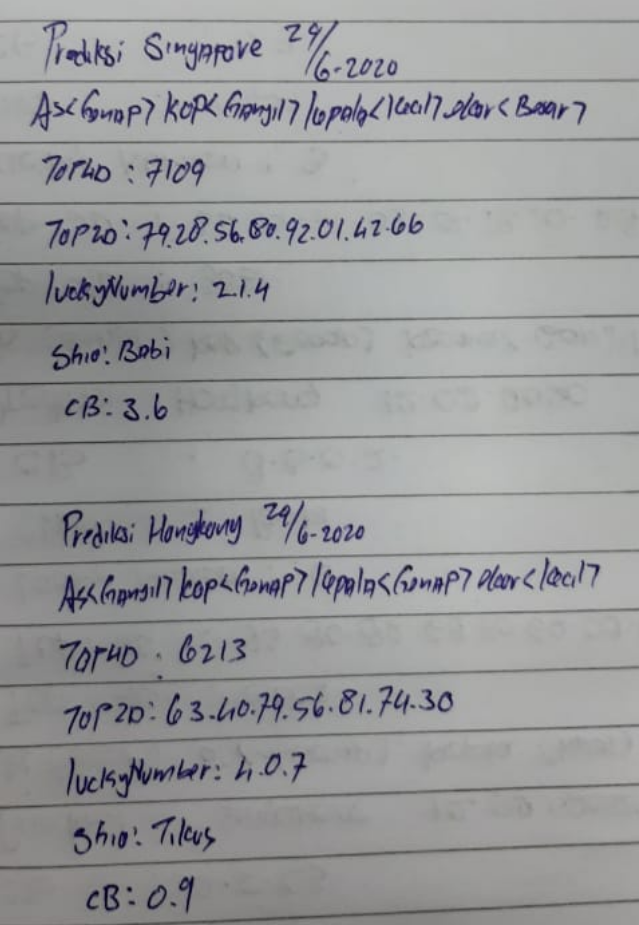 Prediksi Singapore 29/6-2020
As<Genap> Kop<Ganjil> kepala<kecil> ekor<Besar>
Top4D : 7109
Top2D: 79.28.56.80.92.01.42.66
luckyNumber: 2.1.4
Shio: Babi
CB: 3.6
Prediksi Hongkong 29/6-2020
As<Ganjil> kop<Genap> kepala<Genap> ekor<kecil>
Top4D : 6213
Top2D: 63.40.79.56.81.74.30
luckyNumber: 4.0.7
Shio: Tikus
CB: 0.9